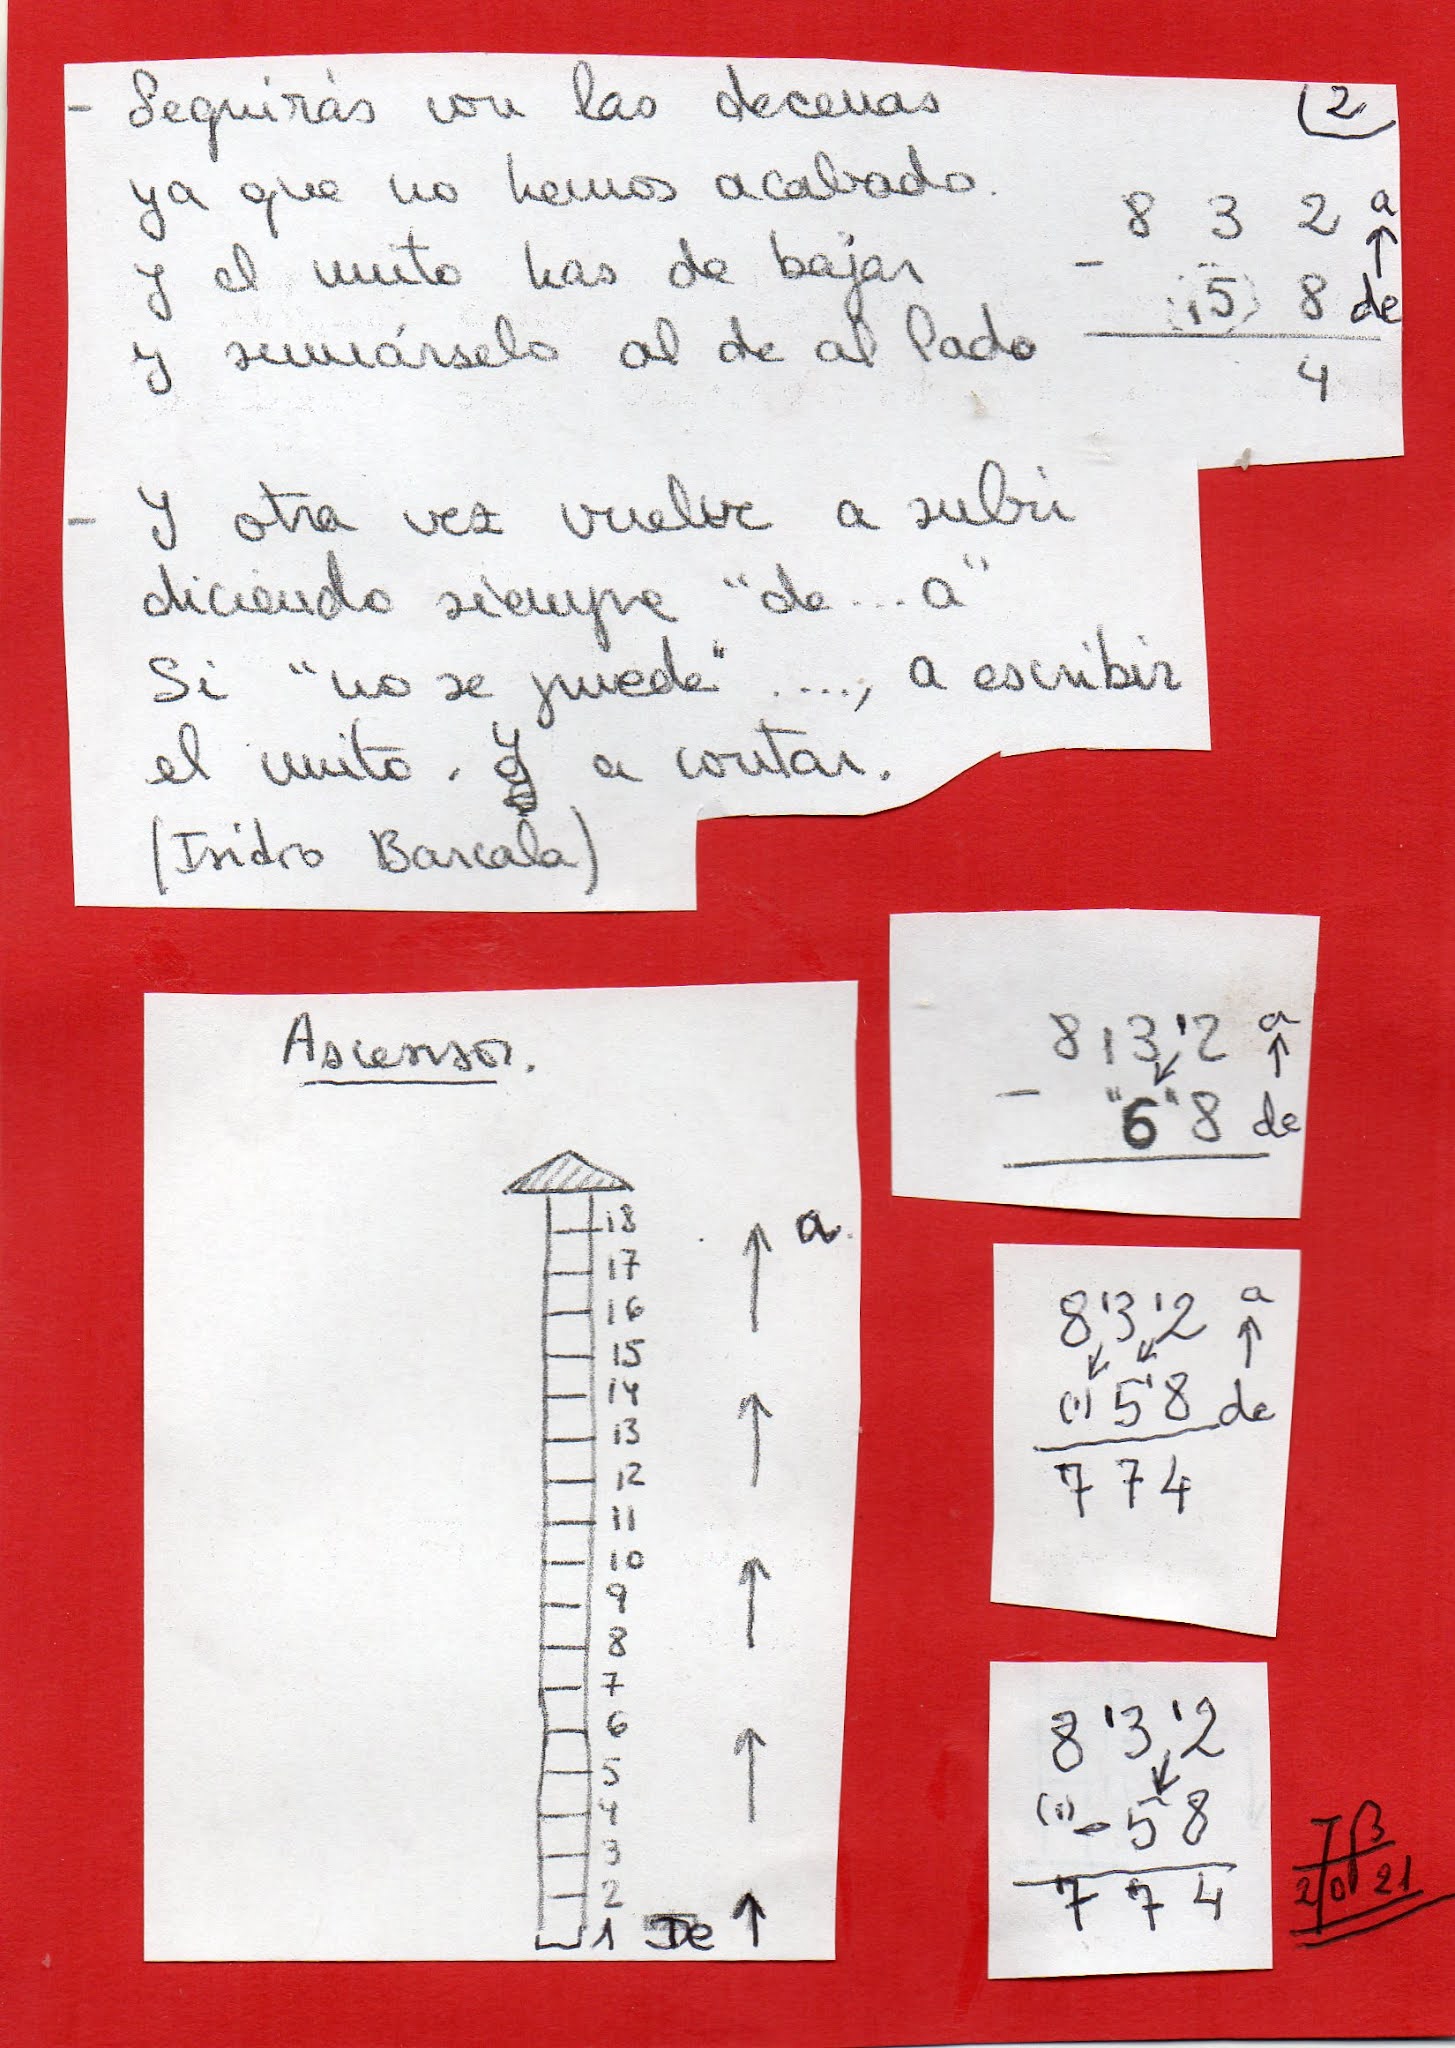 - Seguirás con las decenas
ya que no hemos acabado.
Y el unito has de bajar
y sumárselo al de al lado
(2
8 3 2 a
↑
- ,5 8 de
4
- Y otra vez vuelve a subir
diciendo siempre "de...a"
Si "no se puede" ...., a escribir
el unito. Y a contar.
(Isidro Barcala)
Ascensor.
18
17
16
15
14
13
12
11
10
9
8
7
6
5
4
3
2
1 De ↑
↑ a.
8 ,3 '2 a
↑
- "6" 8 de
8 '3 '2 a
↑
(1) 5' 8 de
7 7 4
8 '3 '2
(1) - 5 8
7 7 4
20 21